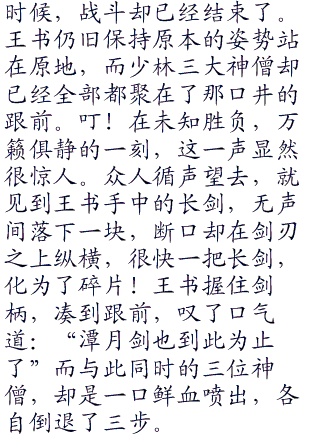 时候，战斗却已经结束了。
王书仍旧保持原本的姿势站
在原地，而少林三大神僧却
已经全部都聚在了那口井的
跟前。叮！在未知胜负，万
籁俱静的一刻，这一声显然
很惊人。众人循声望去，就
见到王书手中的长剑，无声
间落下一块，断口却在剑刃
之上纵横，很快一把长剑，
化为了碎片！王书握住剑
柄，凑到跟前，叹了口气
道：“潭月剑也到此为止
了”而与此同时的三位神
僧，却是一口鲜血喷出，各
自倒退了三步。